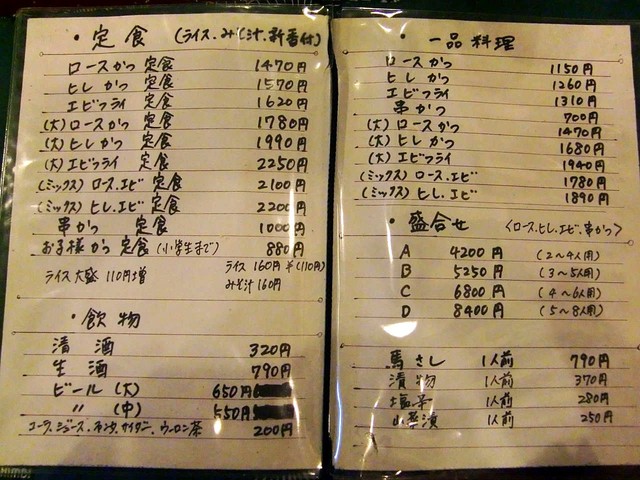 ・定食 (ライス.みそ汁.新香付)
ロースかつ 定食 1470円
ヒレかつ 定食 1570円
エビフライ 定食 1620円
(大)ロースかつ 定食 1780円
(大)ヒレかつ 定食 1990円
(大)エビフライ 定食 2250円
(ミックス)ロース.エビ 定食 2100円
(ミックス)ヒレ.エビ 定食 2200円
串かつ 定食 1000円
お子様かつ 定食 (小学生まで) 880円
ライス大盛 110円増 ライス 160円 半(110円)
みそ汁 160円
・飲物
清酒 320円
生酒 790円
ビール(大) 650円
〃(中) 550円
コーラ.ジュース.ファンタ.サイダー.ウーロン茶 200円
・一品料理
ロースかつ 1150円
ヒレかつ 1260円
エビフライ 1310円
串かつ 700円
(大)ロースかつ 1470円
(大)ヒレかつ 1680円
(大)エビフライ 1940円
(ミックス)ロース.エビ 1780円
(ミックス)ヒレ.エビ 1890円
・盛合せ 〈ロース.ヒレ.エビ.串かつ〉
A 4200円 (2〜4人用)
B 5250円 (3〜5人用)
C 6800円 (4〜6人用)
D 8400円 (5〜8人用)
馬さし 1人前 790円
漬物 1人前 370円
塩辛 1人前 280円
山菜漬 1人前 250円